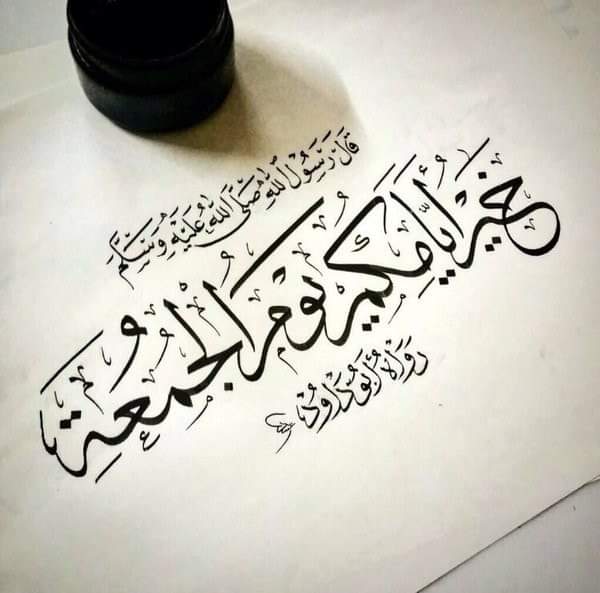 قَالَ رَسُولُ اللهِ صَلَّى اللهُ عَلَيْهِ وَسَلَّمَ
خَيْرُ أَيَّامِكُمْ يَوْمُ الْجُمُعَةِ
رَوَاهُ أَبُو دَاوُدَ